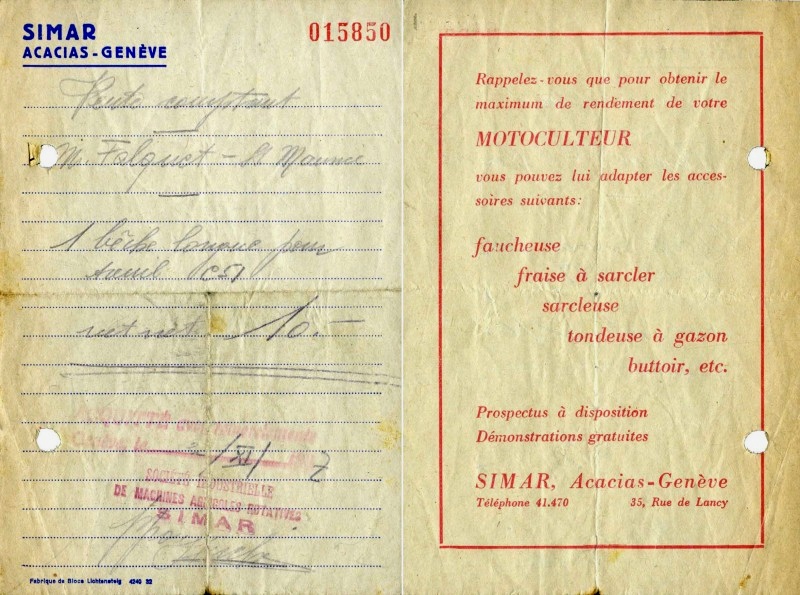 SIMAR
ACACIAS-GENÈVE
015850
Vente comptant
M. Falquet - St Maurice
1 bêche longue pour
net net 10.-
ACQUITTÉ avec remerciements
Genève le 2/XI/ 7
SOCIÉTÉ INDUSTRIELLE
DE MACHINES AGRICOLES ROTATIVES
SIMAR
Fabrique de Blocs Lichtensteig 4240 22
Rappelez-vous que pour obtenir le
maximum de rendement de votre
MOTOCULTEUR
vous pouvez lui adapter les acces-
soires suivants:
faucheuse
fraise à sarcler
sarcleuse
tondeuse à gazon
buttoir, etc.
Prospectus à disposition
Démonstrations gratuites
SIMAR, Acacias-Genève
Téléphone 41.470 35, Rue de Lancy